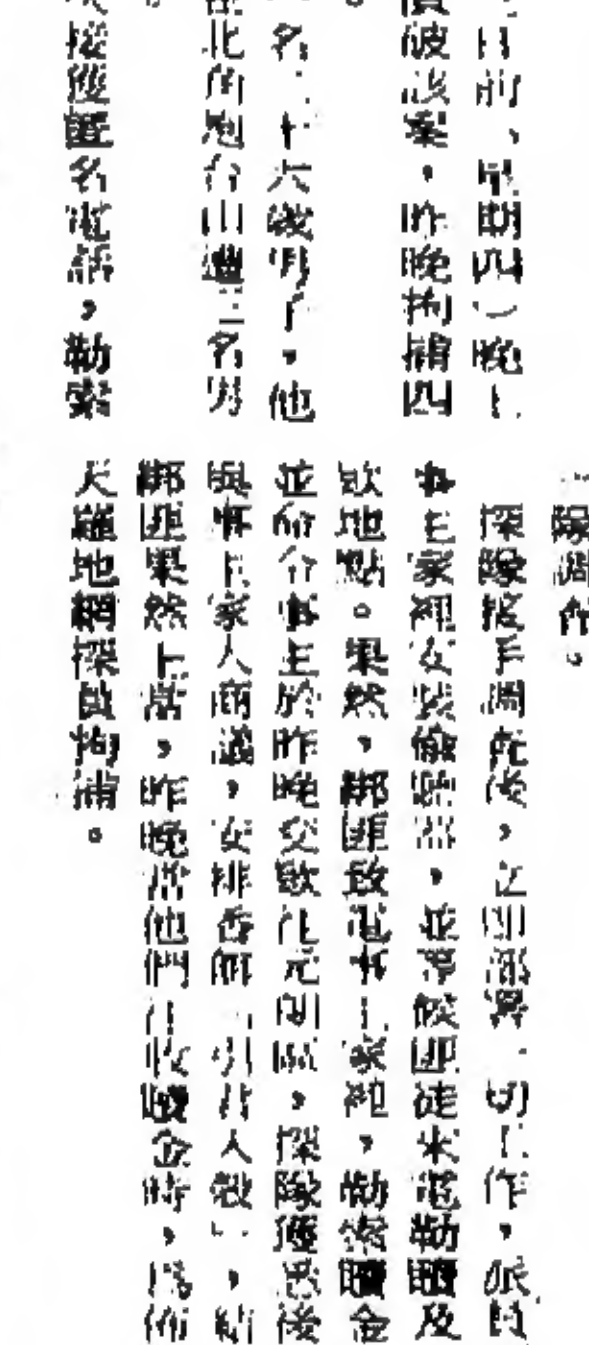 目前（星期四）晚上
偵破該案，昨晚拘捕四
。
名，十六歲男子，他
北角炮台山遭三名男
。
接獲匿名電話，勒索
隊調查。
探隊接手調查後，立即部署一切工作，派員
事主家裡安裝偷聽器，並等候匪徒來電勒贖及
欵地點。果然，綁匪致電事主家裡，勒索贖金
並命令事主於昨晚交欵往元朗區，探隊獲悉後
與事主家人商議，安排香餌「引君入彀」，結
綁匪果然上當，昨晚當他們往收贖金時，爲佈
天羅地網探員拘捕。